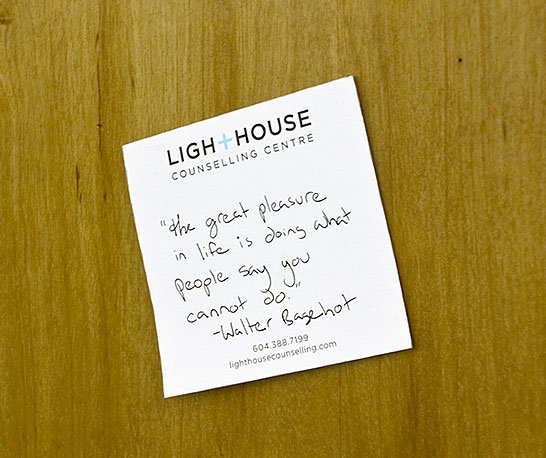 LIGHTHOUSE
COUNSELLING CENTRE
"the great pleasure
in life is doing what
people say you
cannot do."
-Walter Bagehot
604.388.7199
lighthousecounselling.com